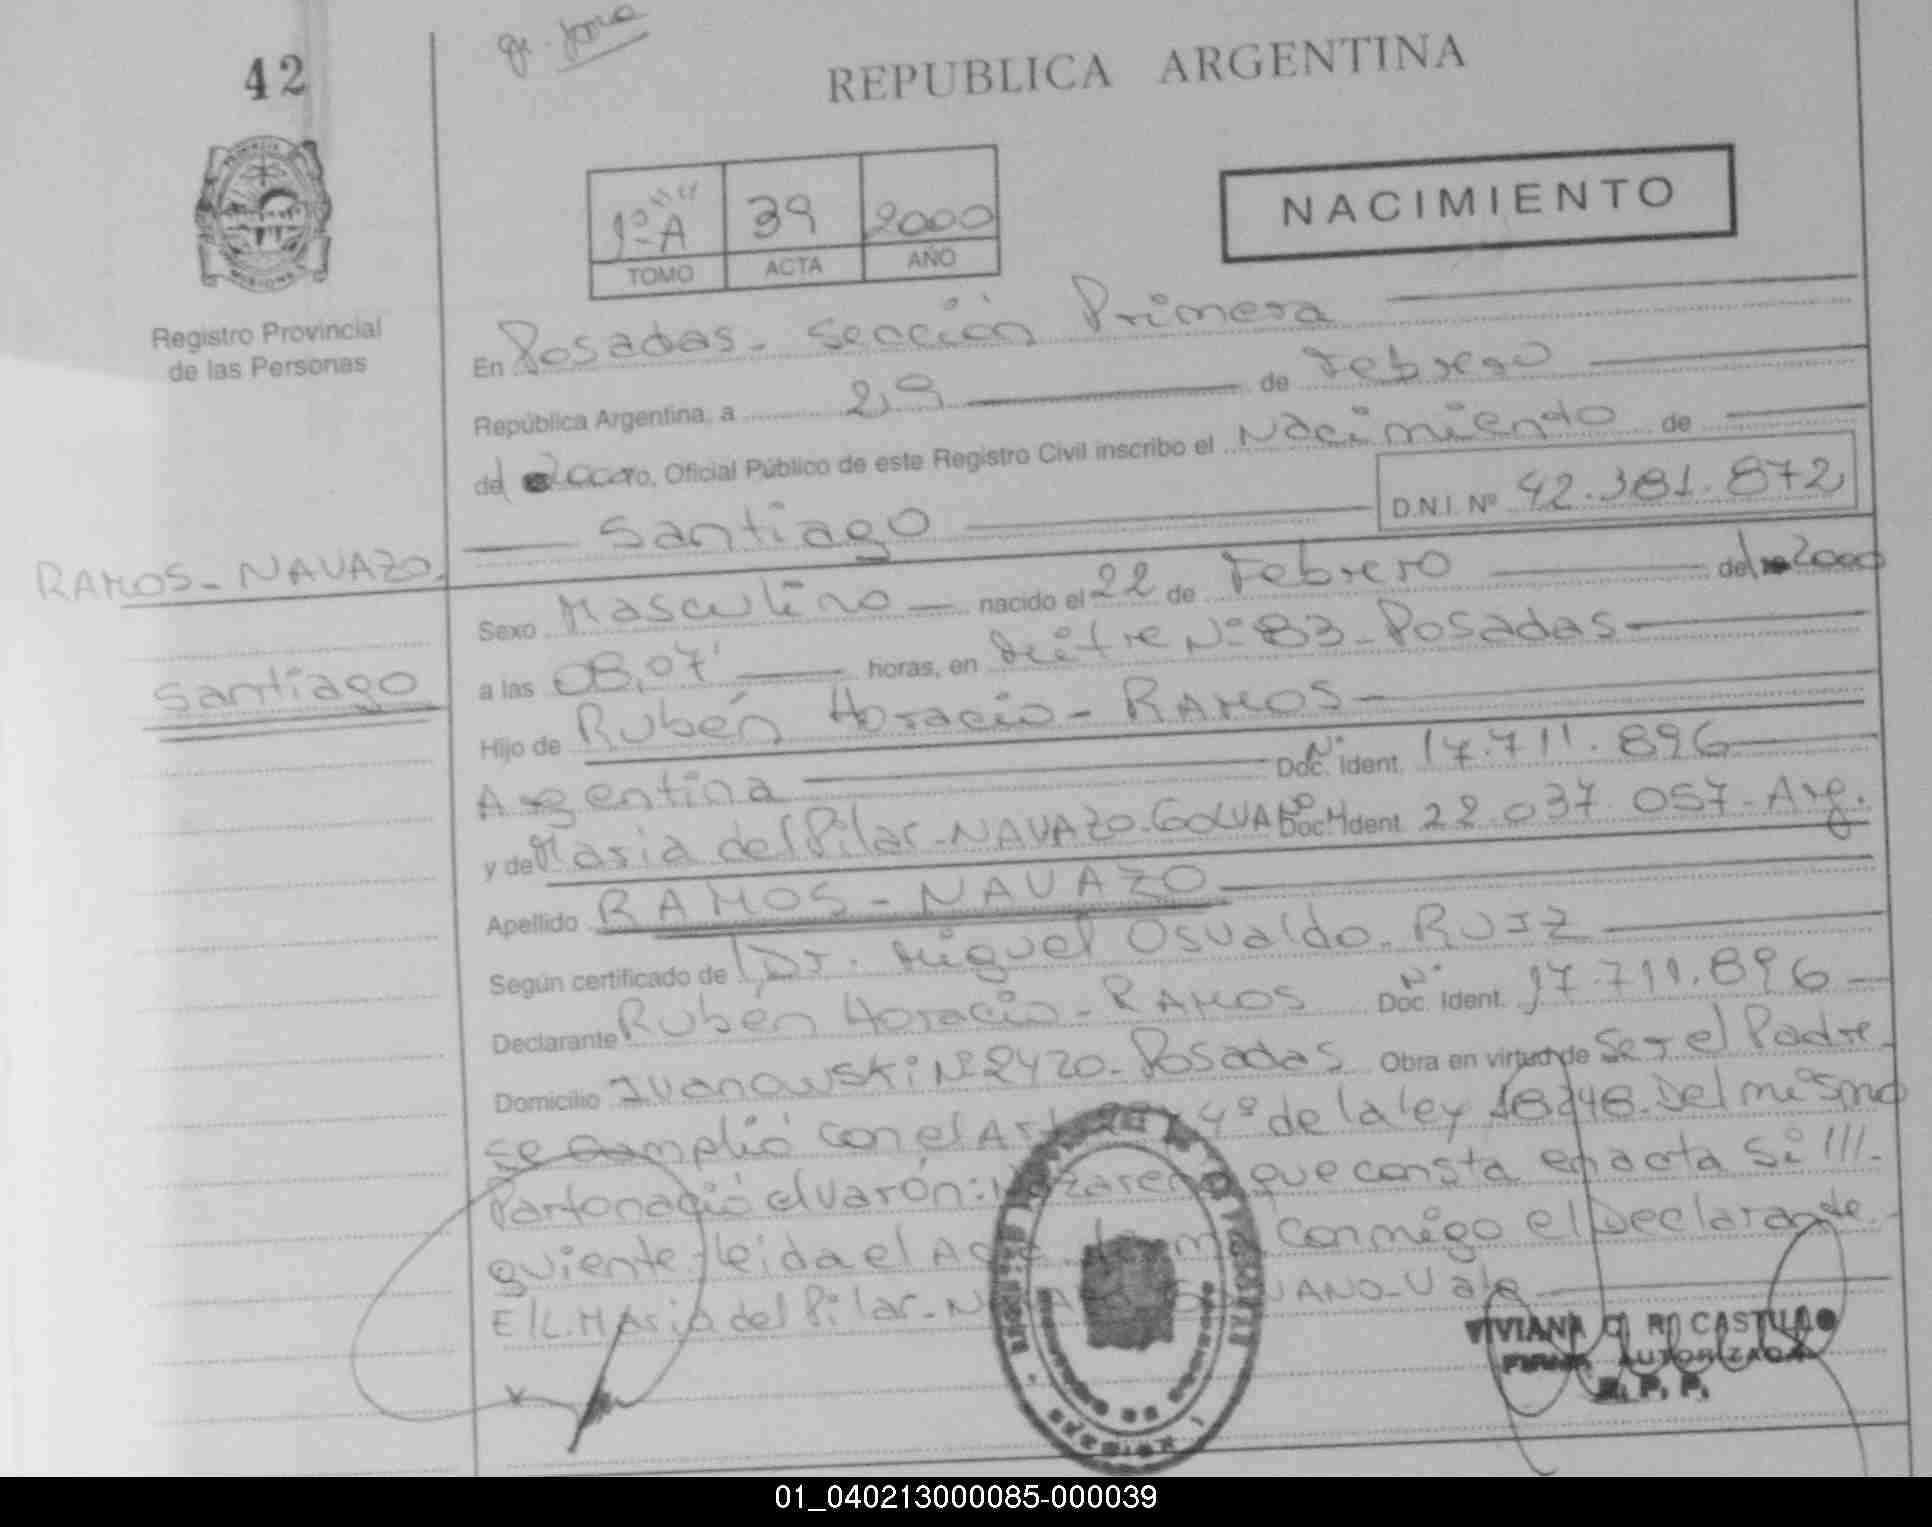 42
REPUBLICA ARGENTINA
1º-A 39 2000
TOMO ACTA AÑO
NACIMIENTO
Registro Provincial
de las Personas
En Posadas - Sección Primera
República Argentina, a 29 de Febrero
del 2000, Oficial Público de este Registro Civil inscribo el Nacimiento de
Santiago D.N.I. Nº 42.381.872
RAMOS - NAVAZO.
Santiago
Sexo Masculino nacido el 22 de Febrero del 2000
a las 08,07' horas, en Mitre Nº 83 - Posadas
Hijo de Rubén Horacio - RAMOS
Argentina Nº Doc. Ident. 17.711.896
y de Maria del Pilar - NAVAZO - Doc. Ident. 22.037.057 - Arg.
Apellido RAMOS - NAVAZO
Según certificado de Dr. Miguel Osvaldo - RUIZ
Declarante Rubén Horacio - RAMOS Nº Doc. Ident. 17.711.896
Domicilio Ivanowski Nº 2420 - Posadas Obra en virtud de Ser el Padre -
se cumplió con el Art. 4º de la ley 18248. Del mismo
Parto nació el varón: que consta en acta Si ///-
guiente - leida el conmigo el Declarante.
E/L. Maria del Pilar - Vale
VIVIANA CASTILLO
FIRMA AUTORIZADA
R. P. P.
01_040213000085-000039